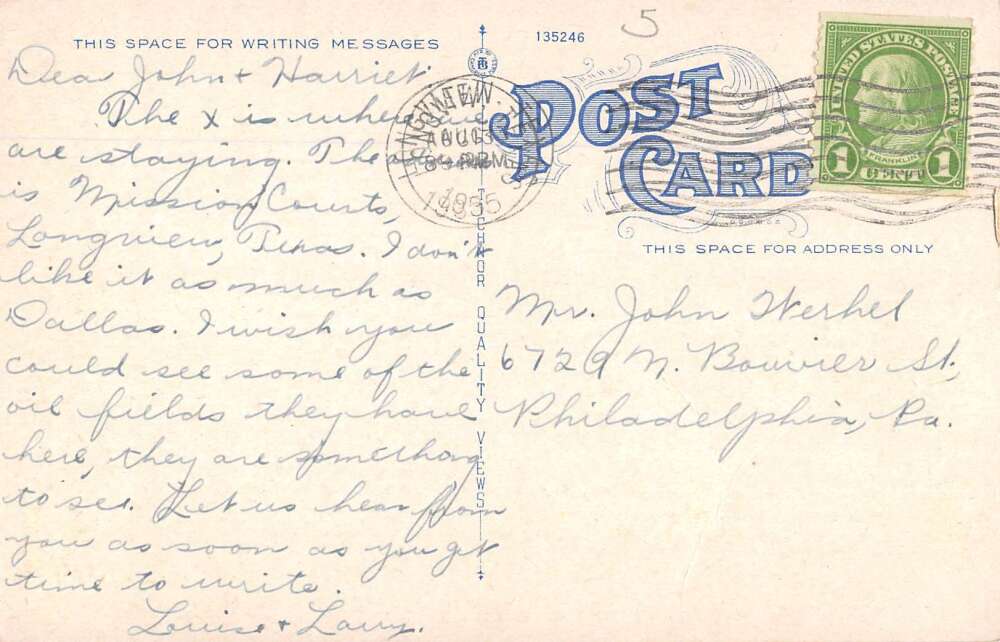 THIS SPACE FOR WRITING MESSAGES
135246
5
POST
CARD
THIS SPACE FOR ADDRESS ONLY
UNITED STATES POSTAGE
FRANKLIN
1 CENT 1
LONGVIEW
AUG
PM
1935
TICHNOR QUALITY VIEWS
Dear John + Harriet
The x is where we
are staying. The
is Mission Courts,
Longview, Texas. I don't
like it as much as
Dallas. I wish you
could see some of the
oil fields they have
here, they are something
to see. Let us hear from
you as soon as you get
time to write.
Louise + Larry.
Mr. John Werhel
6729 N. Bouvier St.,
Philadelphia, Pa.